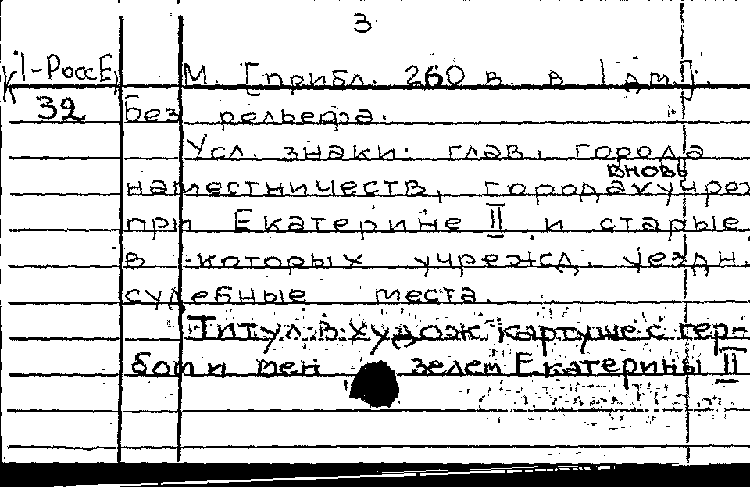 3
К1-РоссЕ М. [прибл. 260 в. в 1 дм.].
32 Без рельефа.
Усл. знаки: глав. города
вновь
наместничеств, города учреж
при Екатерине II и старые,
в которых учрежд. уездн.
судебные места.
Титул в худож. картуше с гер-
бом и вен зелем Екатерины II